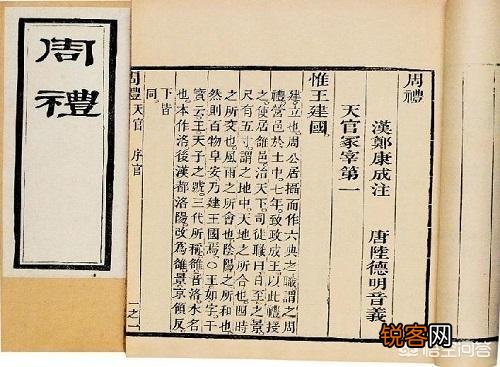 周禮
周禮
漢鄭康成注 唐陸德明音義
天官冢宰第一
惟王建國
建立也周公居攝而作六典之職謂之周
禮營邑於土中七年致政成王以此禮授
之使居雒邑治天下司徒職曰日至之景
尺有五寸謂之地中天地之所合也四時
之所交也風雨之所會也陰陽之所和也
然則百物阜安乃建王國焉○王如字干
寳云王天子之號三代所稱雒音洛水名
也本作洛後漢都洛陽改為雒景京領反
下皆
同
周禮 天官 序官 一之一
锐客网
悟空问答